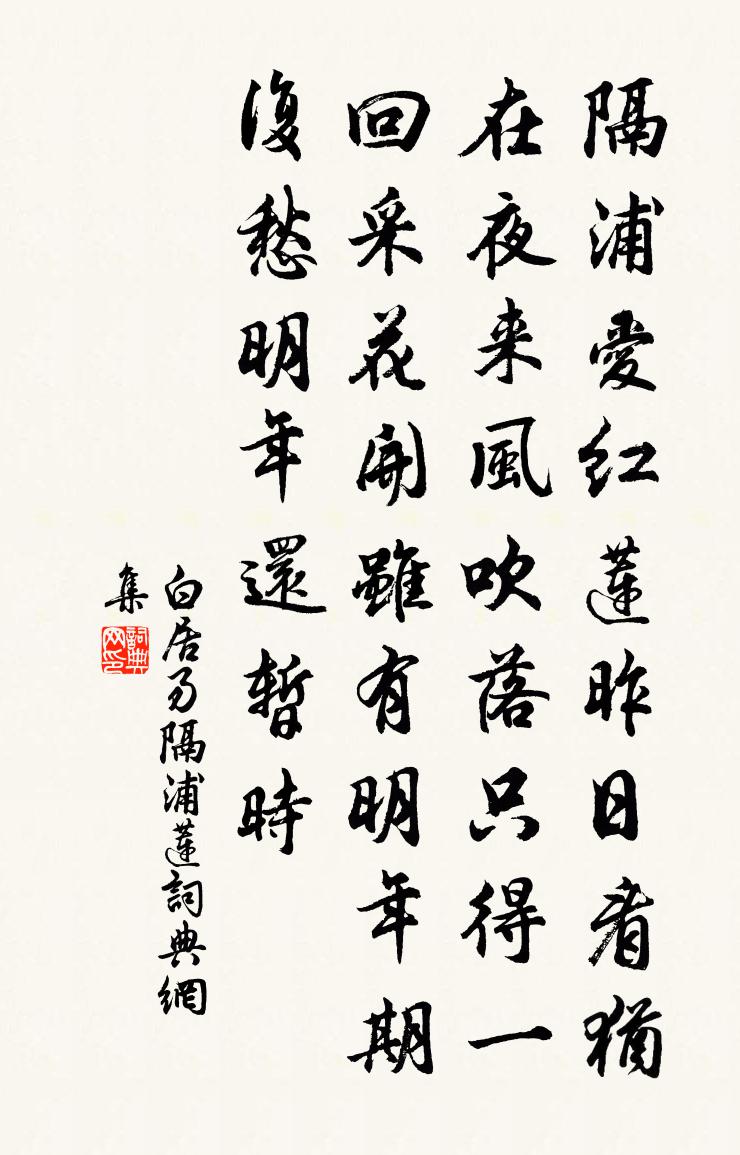 隔浦愛紅蓮昨日看猶
在夜来風吹落只得一
回采花開雖有明年期
復愁明年還暫時
白居易隔浦蓮詞典網
集
詞典
网印